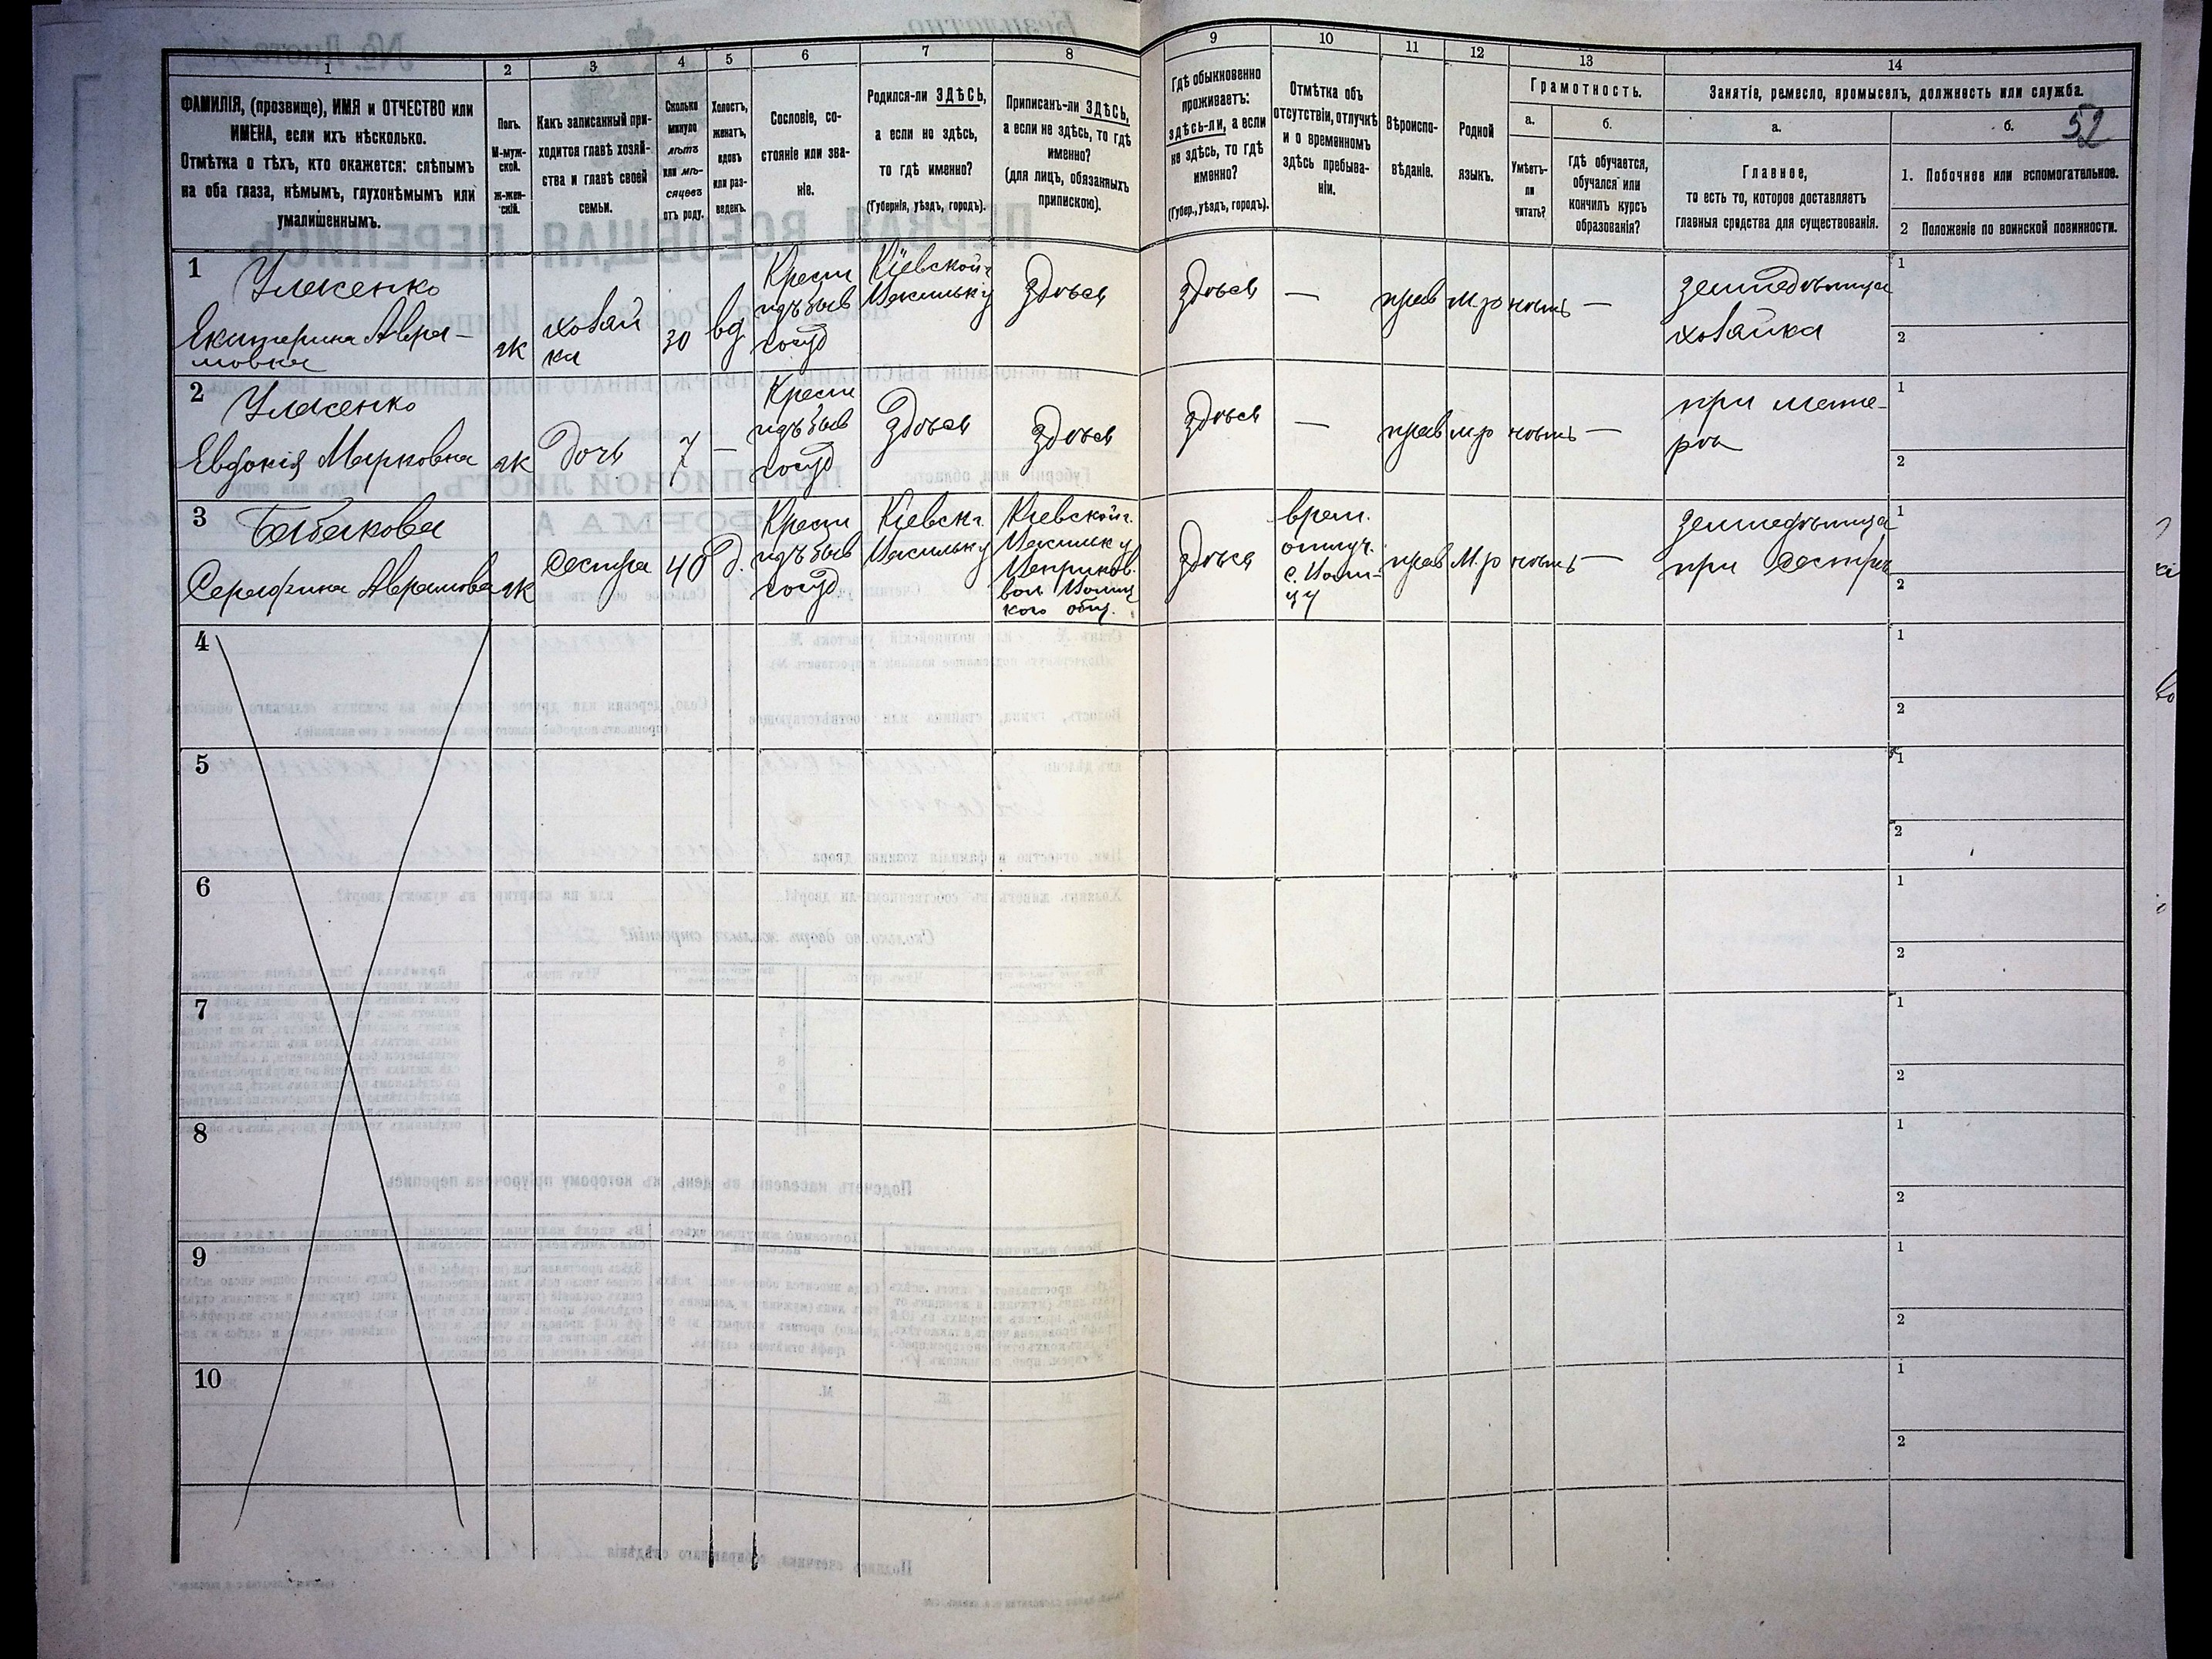 1
2
3
4
5
6
7
8
9
10
11
12
13
14
ФАМИЛІЯ, (прозвище), ИМЯ и ОТЧЕСТВО или
ИМЕНА, если ихъ нѣсколько.
Отмѣтка о тѣхъ, кто окажется: слѣпымъ
на оба глаза, нѣмымъ, глухонѣмымъ или
умалишеннымъ.
Полъ.
М-муж-
ской.
ж-жен-
скій.
Какъ записанный при-
ходится главѣ хозяй-
ства и главѣ своей
семьи.
Сколько
минуло
лѣтъ
или мѣ-
сяцевъ
отъ роду.
Холостъ,
женатъ,
вдовъ
или раз-
веденъ.
Сословіе, со-
стояніе или зва-
ніе.
Родился-ли ЗДѢСЬ,
а если не здѣсь,
то гдѣ именно?
(Губернія, уѣздъ, городъ).
Приписанъ-ли ЗДѢСЬ,
а если не здѣсь, то гдѣ
именно?
(для лицъ, обязанныхъ
припискою).
Гдѣ обыкновенно
проживаетъ:
здѣсь-ли, а если
не здѣсь, то гдѣ
именно?
(Губер., уѣздъ, городъ).
Отмѣтка объ
отсутствіи, отлучкѣ
и о временномъ
здѣсь пребыва-
ніи.
Вѣроиспо-
вѣданіе.
Родной
языкъ.
Грамотность.
а.
б.
Умѣетъ-
ли
читать?
гдѣ обучается,
обучался или
кончилъ курсъ
образованія?
Занятіе, ремесло, промыселъ, должность или служба.
а.
б.
52
Главное,
то есть то, которое доставляетъ
главныя средства для существованія.
1. Побочное или вспомогательное.
2 Положеніе по воинской повинности.
1
Екатерина Авра-
мовна
ж
хозяй
ка
30
вд
Крест
изъ быв
госуд
Кіевской г
Васильк у
здѣсь
здѣсь
—
прав
м.р
нѣтъ
—
земледѣлица
хозяйка
1
2
2
Евдокія Марковна
ж
дочь
7
—
Крест
изъ быв
госуд
здѣсь
здѣсь
здѣсь
—
прав
м р
нѣтъ
—
при мате-
ри
1
2
3
Бабакова
Серафина Аврамова
ж
сестра
40
д.
Крест
изъ быв
госуд
Кіевск г.
Васильк у
Кіевской г.
Васильк у
вол
кого общ.
здѣсь
врем.
отлуч.
с.
прав
м.р
нѣтъ
—
земледѣлица
при сестрѣ
1
2
4
1
2
5
1
2
6
1
2
7
1
2
8
1
2
9
1
2
10
1
2